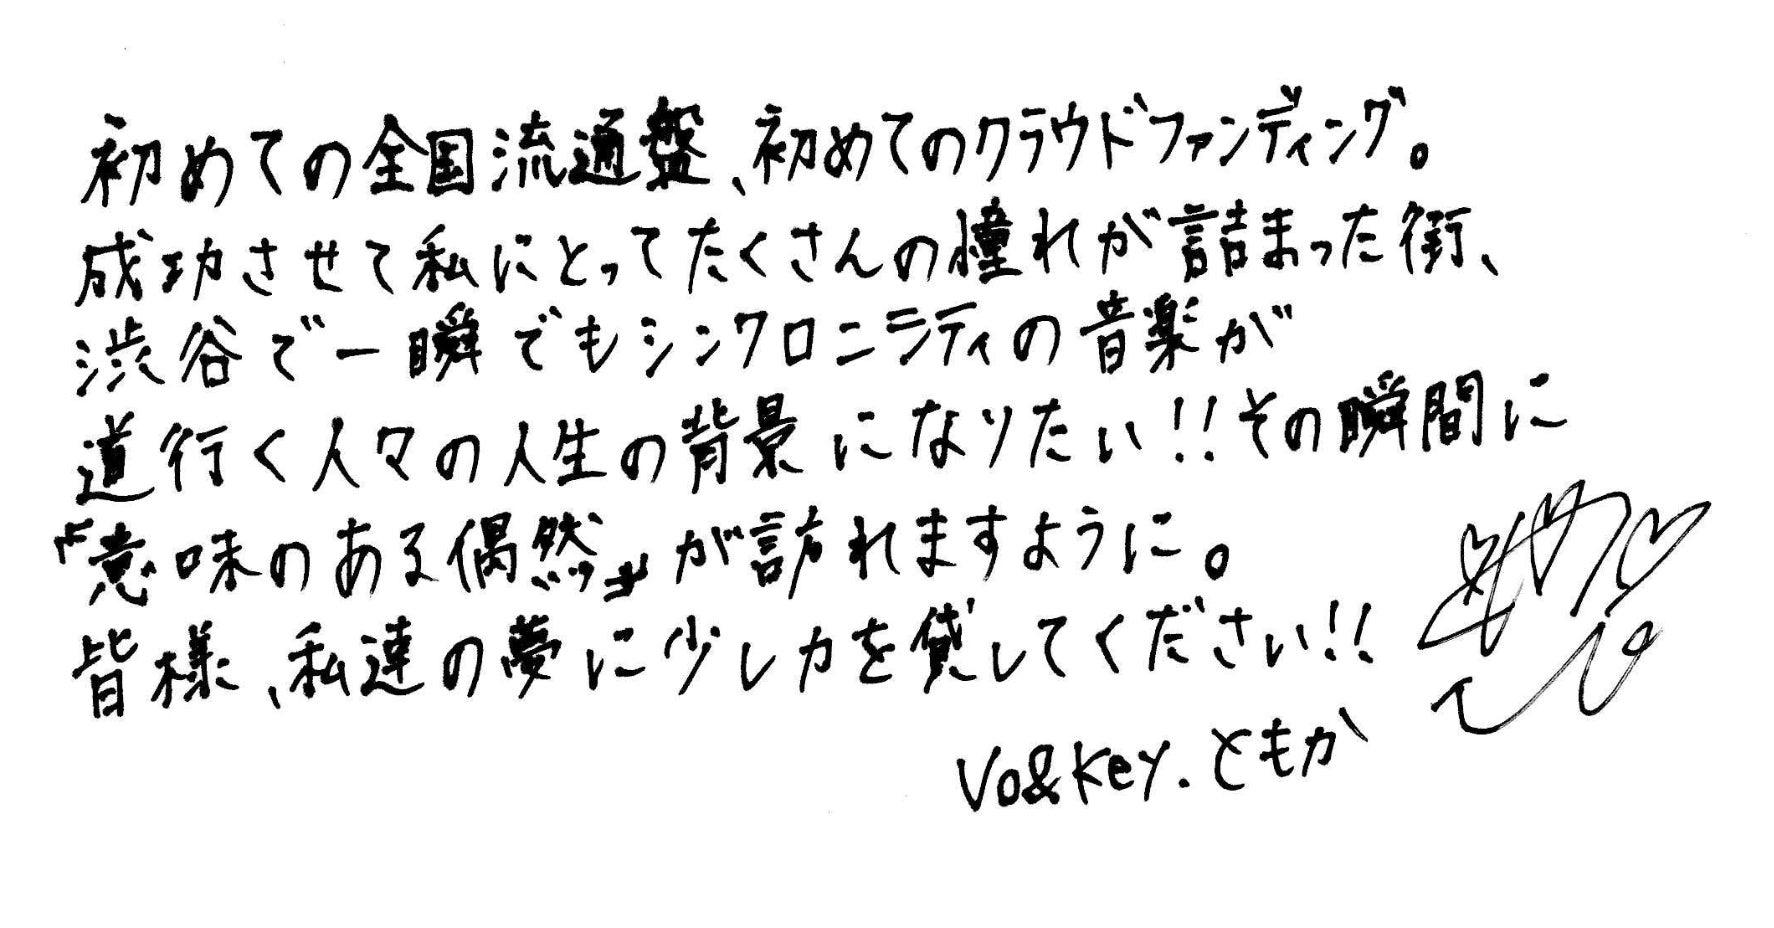 初めての全国流通盤、初めてのクラウドファンディング。
成功させて私にとってたくさんの憧れが詰まった街、
渋谷で一瞬でもシンクロニシティの音楽が
道行く人々の人生の背景になりたい!!その瞬間に
『意味のある偶然』が訪れますように。
皆様、私達の夢に少し力を貸してください!!
Vo&Key.ともか